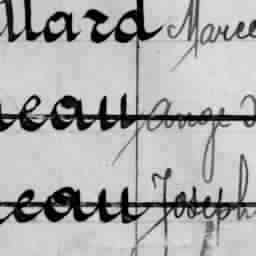 llard Marce
neau Ange
neau Joseph